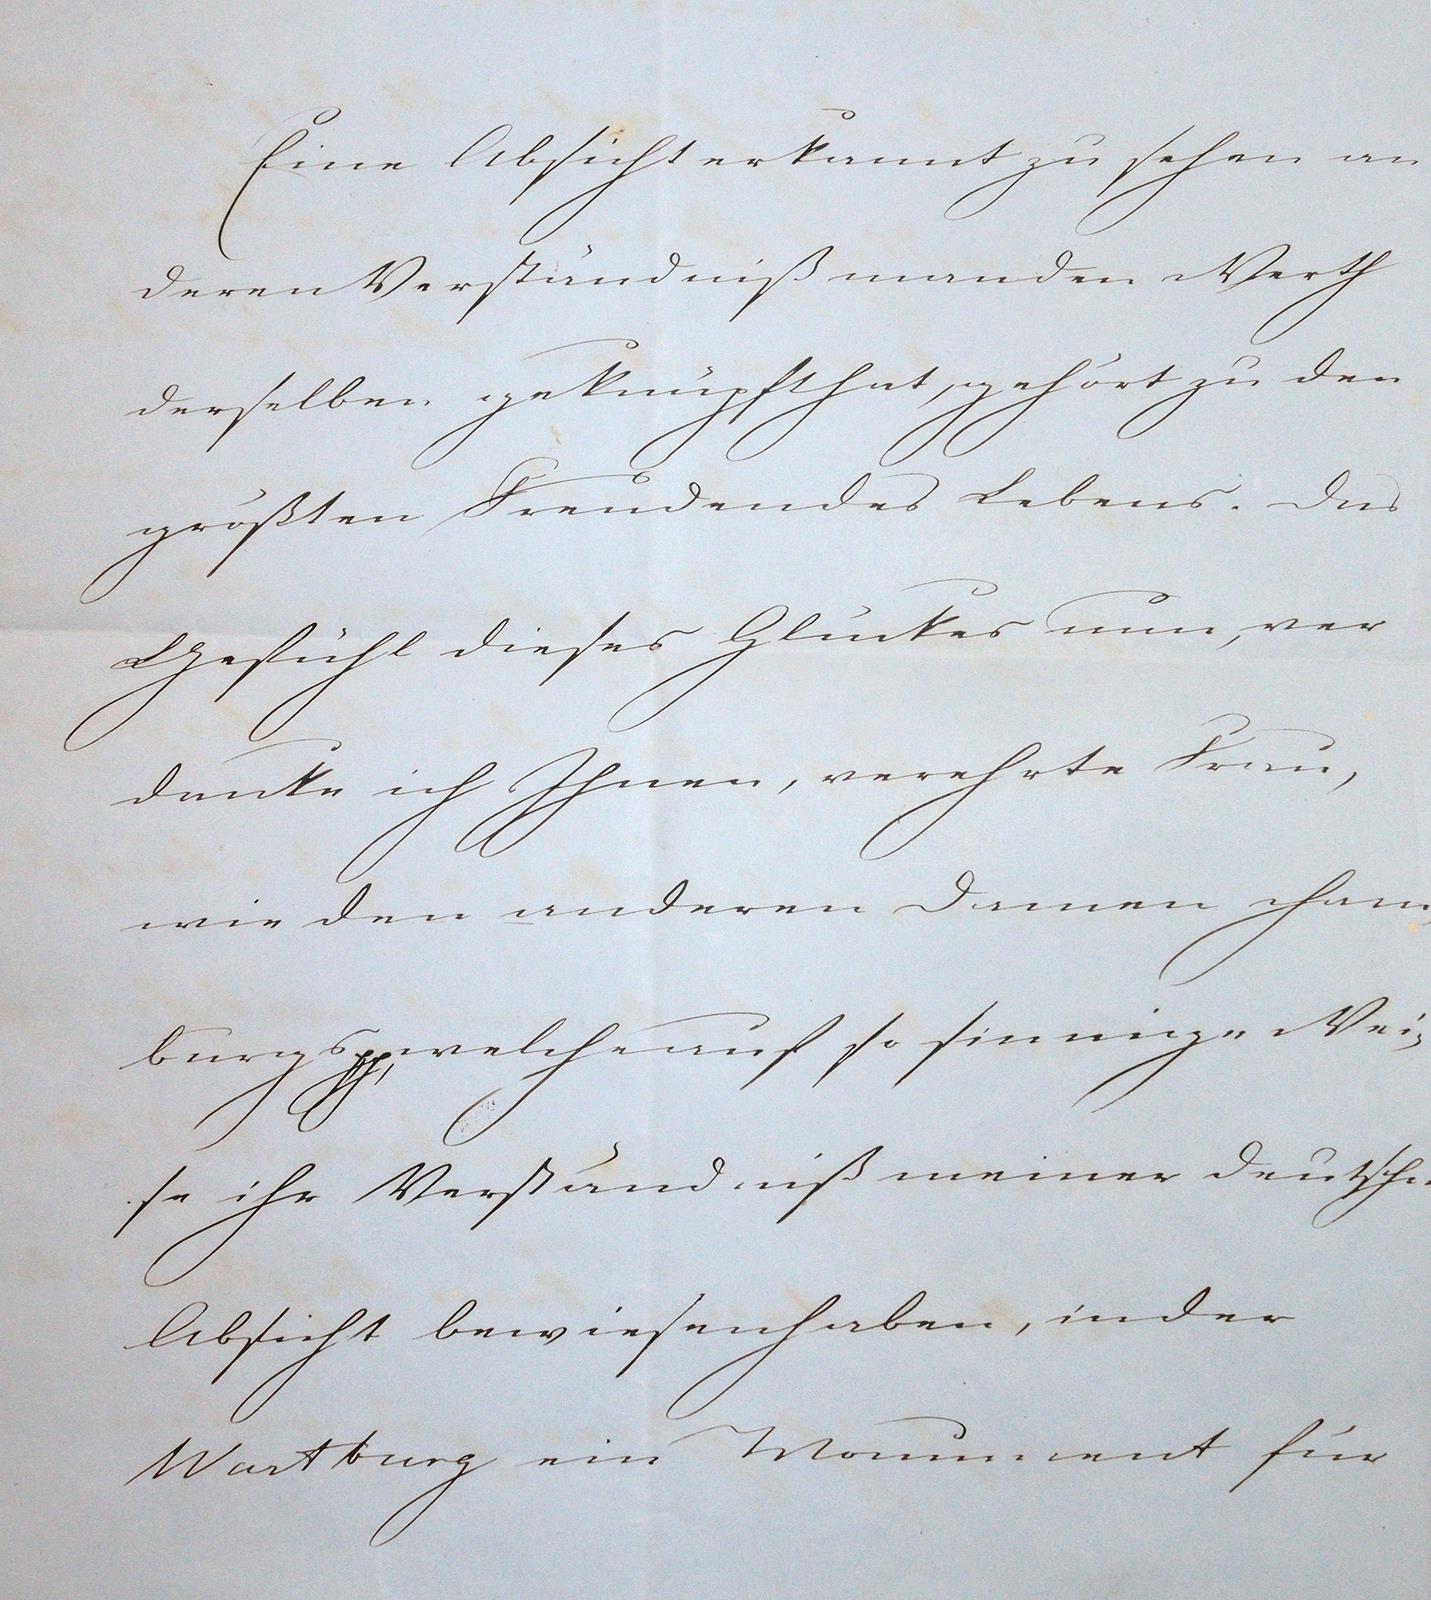 Eine Absicht erkannt zu sehen an
deren Verständniß man den Werth
derselben geknüpft hat, gehört zu den
größten Freuden des Lebens. Das
Gefühl dieses Glückes nun, ver
danke ich Ihnen, verehrte Frau,
wie den anderen Damen Ham
burgs pp, welche auf so sinnige Wei
se ihr Verständniß meiner deutschen
Absicht bewiesen haben, in der
Wartburg ein Monument für